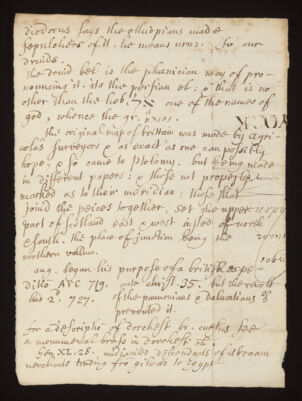 diodorus says the ethiopians made
sepulchers of it. he means urns. So our
druids.
the druid bel is the phœnician way of pro-
nouncing it. its the persian el: & that is no
other than the heb. אל one of the names of
god, whence the gr. ηλιος.
the original map of brittain was made by agri-
colas surveyors & as exact as one can possibly
hope & so came to Ptolomy. but being made
in different papers: & those not properly
marked as to their meridian: those that
joind the peices together, set the upper
part of Scotland east & west insted of north
& south. the place of junction being the
northern vallum.
aug. began his purpose of a british expe-
ditio AVC 719. ante christ. 35. but the revolt
his 2. 727. of the pannonians & dalmatians
prevented it.
for a descriptio of dorchest br. see
a monumental brass in dorchest
Gen XL. 25. midianites descendants of abraam
merchants trading fro gilead to Egypt